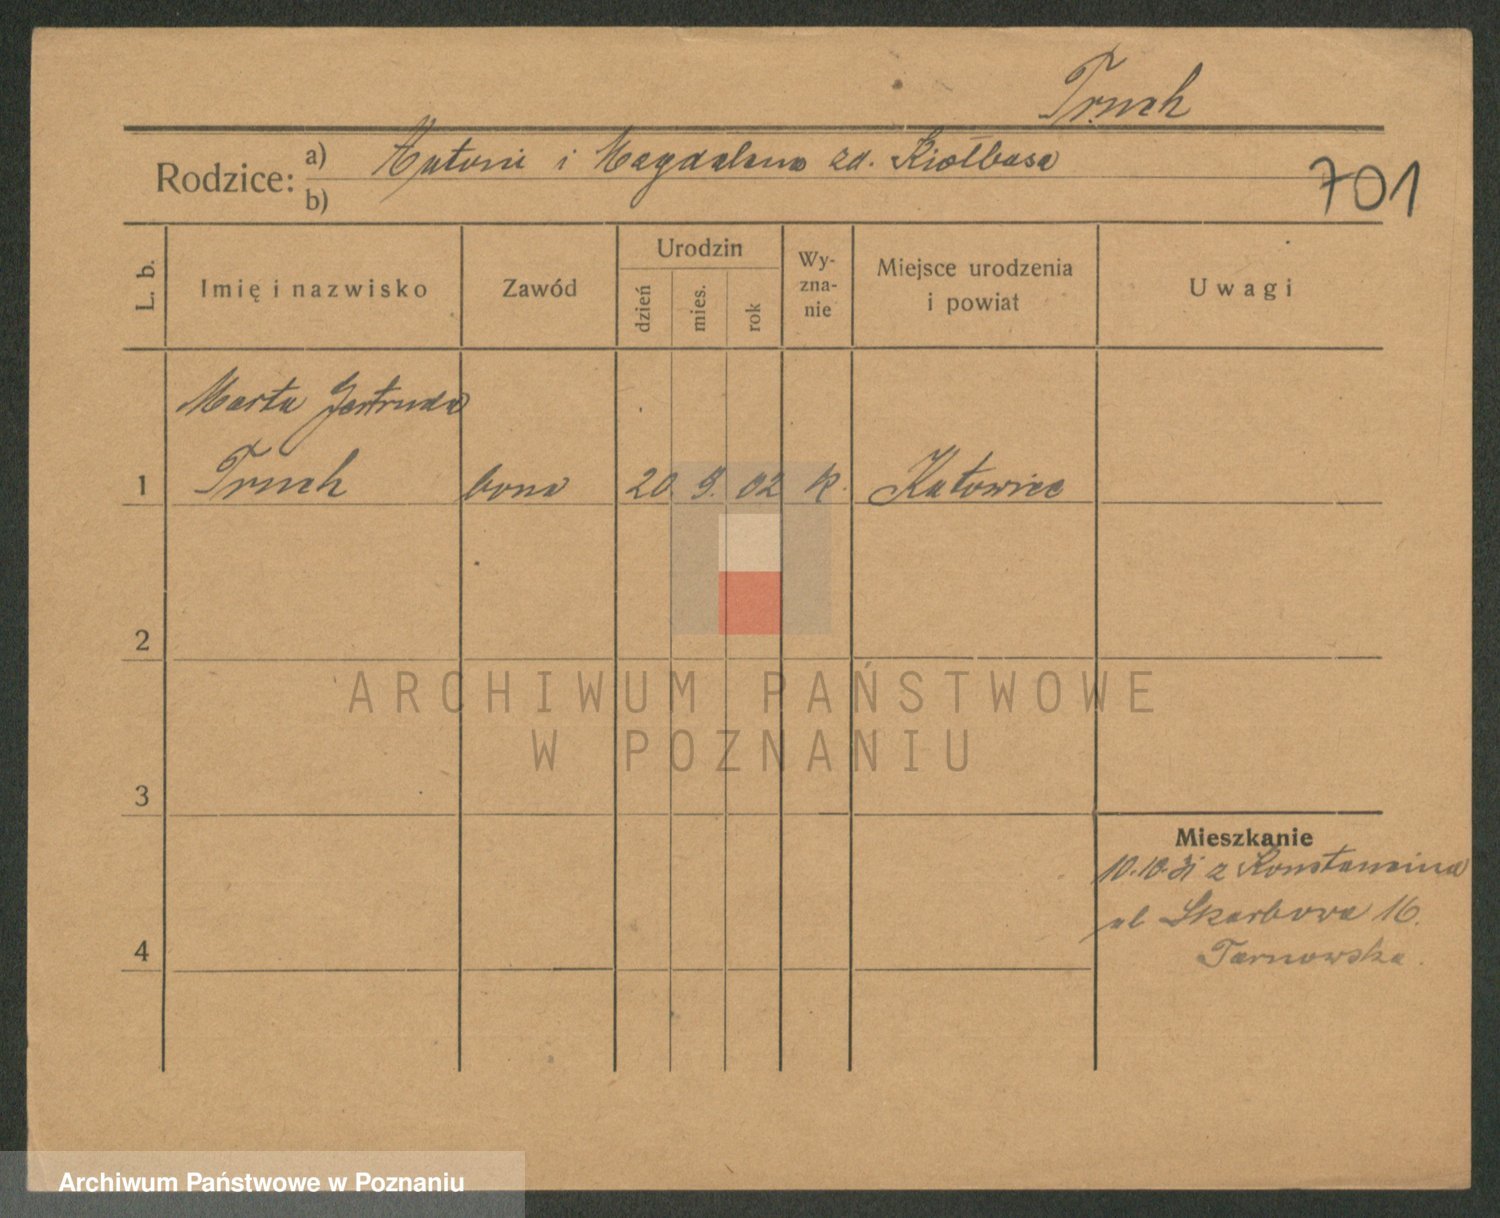 Truch
Rodzice: a) Antoni i Magdalena zd. Kiołbasa
b)
701
L. b.
Imię i nazwisko
Zawód
Urodzin
dzień
mies.
rok
Wy-
zna-
nie
Miejsce urodzenia
i powiat
Uwagi
Marta Gertruda
1 Truch bona 20. 9. 02 k. Katowice
2
ARCHIWUM PAŃSTWOWE
W POZNANIU
3
Mieszkanie
10.10.31 z Konstancina
ul Skarbowa 16.
4 Tarnowska.
Archiwum Państwowe w Poznaniu